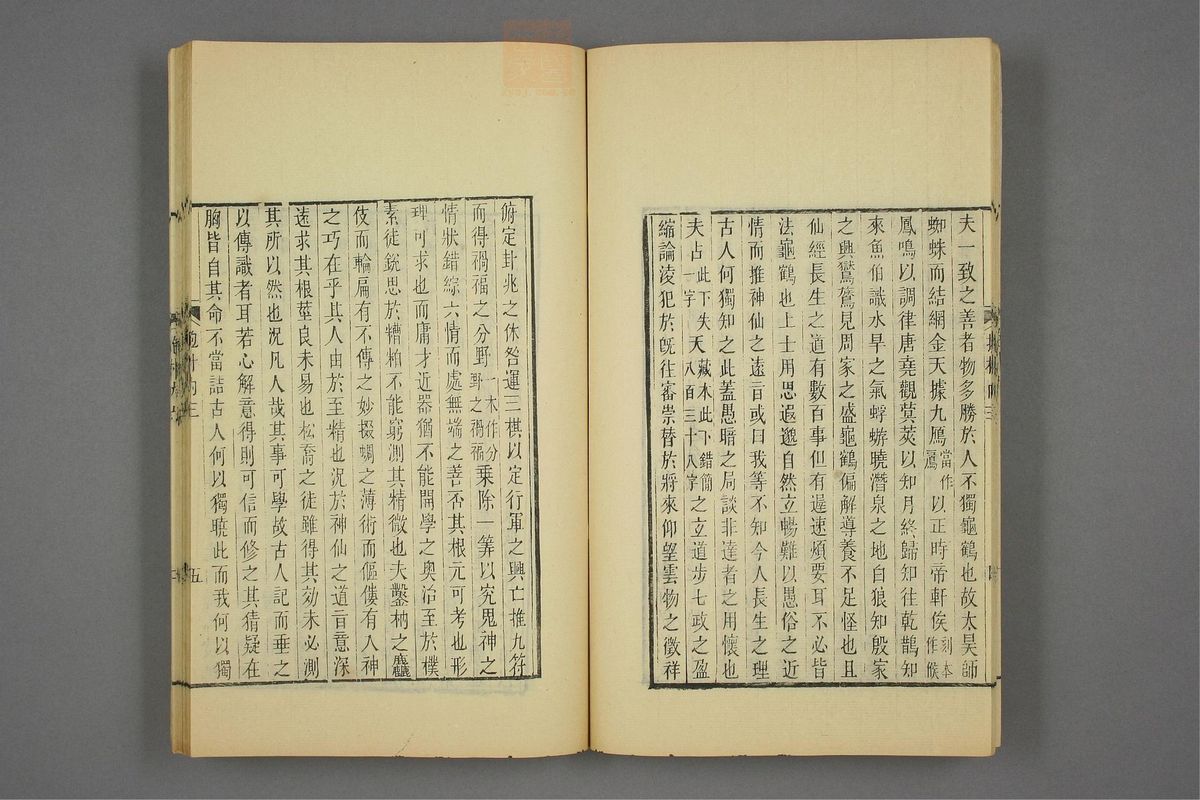 夫一致之善者物多勝於人不獨龜鶴也故太昊師
蜘蛛而結網金天據九鳸當作鳸以正時帝軒俟刻本作候
鳳鳴以調律唐堯觀蓂莢以知月終歸知往乾鵲知
來魚伯識水旱之氣蜉蝣曉潛泉之地白狼知殷家
之興鸑鷟見周家之盛龜鶴偏解導養不足怪也且
仙經長生之道有數百事但有遲速煩要耳不必皆
法龜鶴也上士用思遐邈自然立暢難以愚俗之近
情而推神仙之遠旨或曰我等不知今人長生之理
古人何獨知之此蓋愚暗之局談非達者之用懷也
夫占此下失一字天藏本此下錯簡八百三十八字之立道步七政之盈
縮論淩犯於旣往審崇替於將來仰望雲物之徵祥
俯定卦兆之休咎運三棋以定行軍之興亡推九符
而得禍福之分野一本作分野之禍福乘除一筭以究鬼神之
情狀錯綜六情而處無端之善否其根元可考也形
理可求也而庸才近器猶不能開學之奧治至於樸
素徒銳思於糟粕不能窮測其精微也夫鑿枘之麄
伎而輪扁有不傳之妙掇蜩之薄術而傴僂有入神
之巧在乎其人由於至精也況於神仙之道旨意深
遠求其根莖良未易也松喬之徒雖得其効未必測
其所以然也況凡人哉其事可學故古人記而垂之
以傳識者耳若心解意得則可信而修之其猜疑在
胸皆自其命不當詰古人何以獨曉此而我何以獨
五